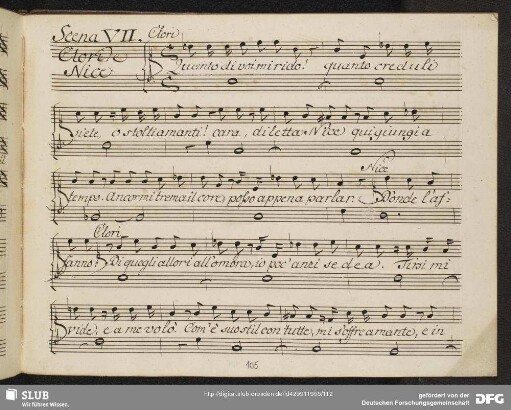 Scena VII. Clori
Clori e
Nice
Quanto di voi mi rido! quanto creduli
siete, o stolti amanti! cara, diletta Nice qui giungi a
Nice
tempo. Ancor mi trema il core, posso appena parlar. Donde l'af=
Clori
fanno? Di quegli allori all'ombra, io poc'anzi sedea. Tirsi mi
vide, e a me volò. Com'è suo stil con tutte, mi s'offre amante, e in
105
SLUB
Wir führen Wissen.
gefördert von der
Deutschen Forschungsgemeinschaft
DFG